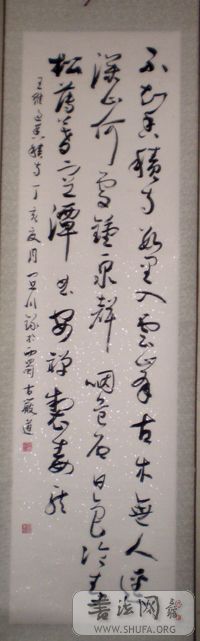 不知香積寺數里入雲峰古木無人徑
深山何處鐘泉聲咽危石日色冷青
松薄暮空潭曲安禪制毒龍
王維過香積寺丁亥夏月於西蜀古嚴道
書法网
WWW.SHUFA.ORG